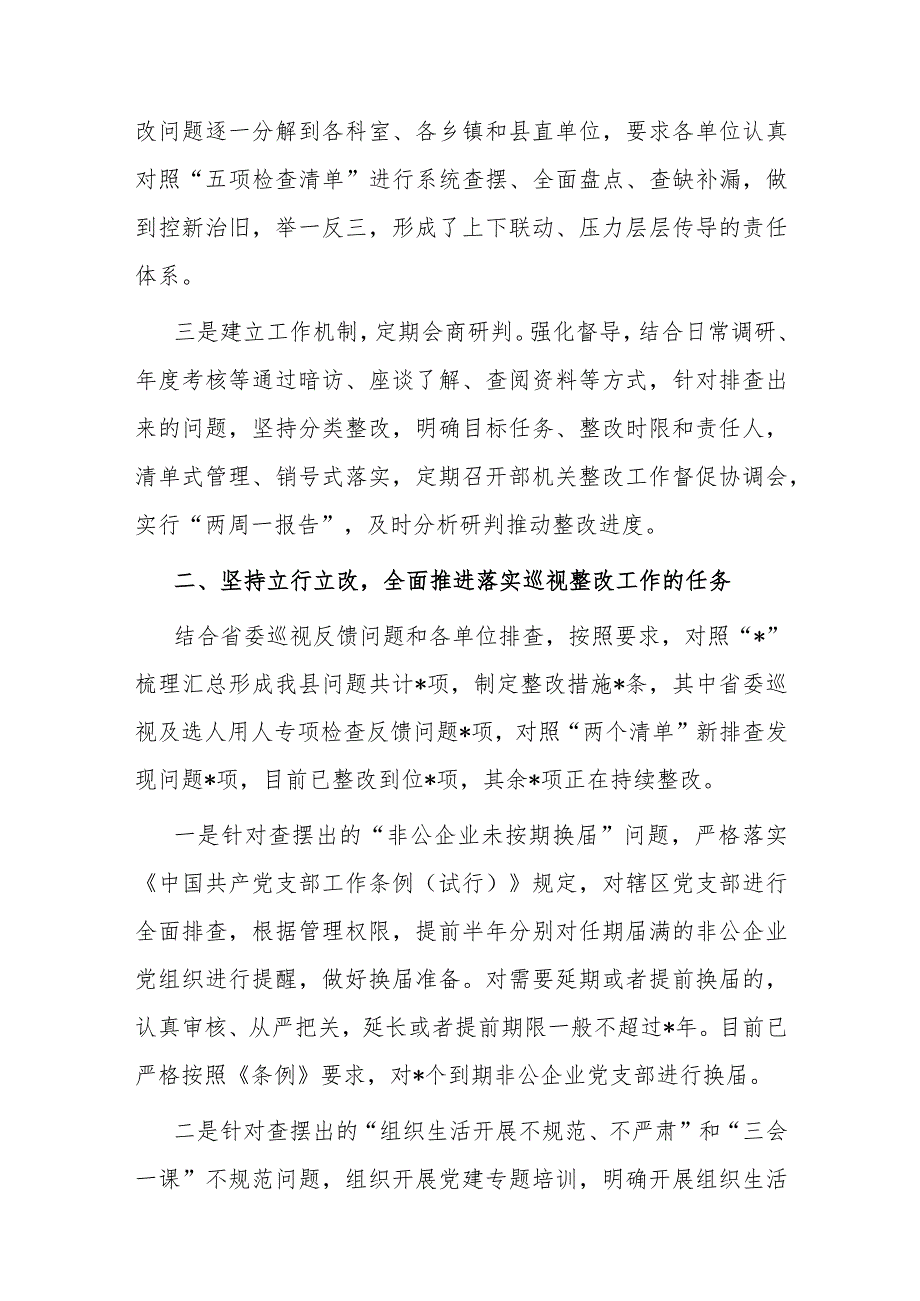 改问题逐一分解到各科室、各乡镇和县直单位，要求各单位认真
对照“五项检查清单”进行系统查摆、全面盘点、查缺补漏，做
到控新治旧，举一反三，形成了上下联动、压力层层传导的责任
体系。
三是建立工作机制，定期会商研判。强化督导，结合日常调研、
年度考核等通过暗访、座谈了解、查阅资料等方式，针对排查出
来的问题，坚持分类整改，明确目标任务、整改时限和责任人，
清单式管理、销号式落实，定期召开部机关整改工作督促协调会，
实行“两周一报告”，及时分析研判推动整改进度。
二、坚持立行立改，全面推进落实巡视整改工作的任务
结合省委巡视反馈问题和各单位排查，按照要求，对照“*”
梳理汇总形成我县问题共计*项，制定整改措施*条，其中省委巡
视及选人用人专项检查反馈问题*项，对照“两个清单”新排查发
现问题*项，目前已整改到位*项，其余*项正在持续整改。
一是针对查摆出的“非公企业未按期换届”问题，严格落实
《中国共产党支部工作条例（试行）》规定，对辖区党支部进行
全面排查，根据管理权限，提前半年分别对任期届满的非公企业
党组织进行提醒，做好换届准备。对需要延期或者提前换届的，
认真审核、从严把关，延长或者提前期限一般不超过*年。目前已
严格按照《条例》要求，对*个到期非公企业党支部进行换届。
二是针对查摆出的“组织生活开展不规范、不严肃”和“三会
一课”不规范问题，组织开展党建专题培训，明确开展组织生活